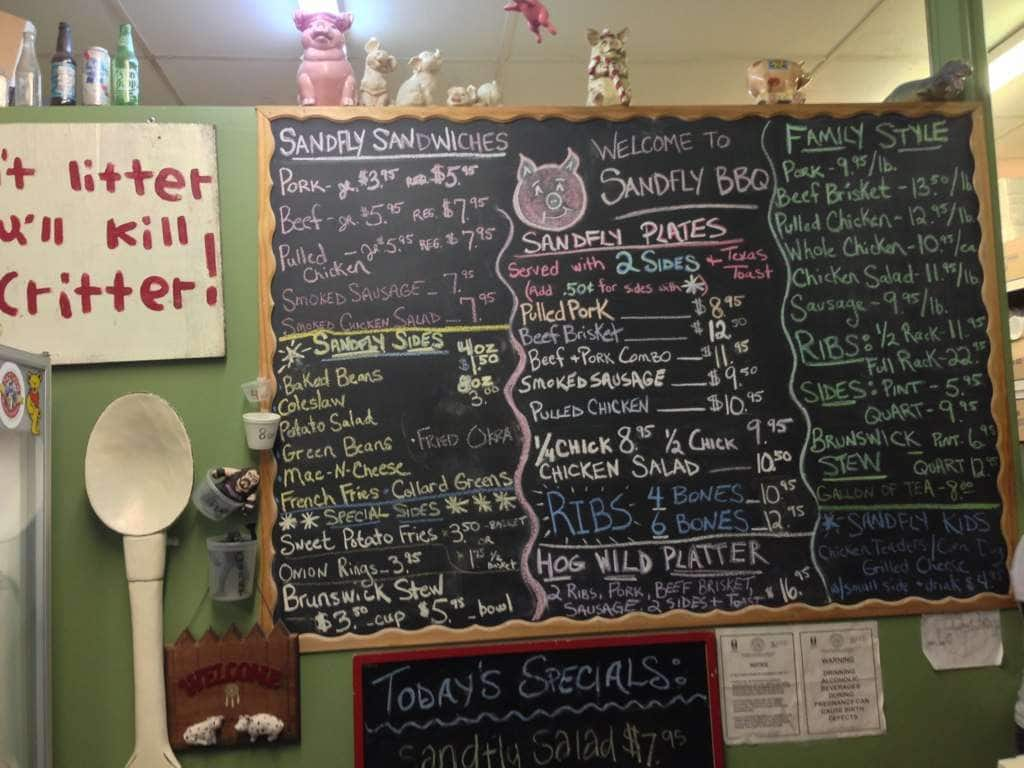 't litter
u'll kill
Critter!
SANDFLY SANDWICHES
PORK - Jr. $3.95 REG. $5.95
BEEF - Jr. $5.95 REG. $7.95
PULLED CHICKEN - Jr. $5.95 REG. $7.95
SMOKED SAUSAGE - 7.95
SMOKED CHICKEN SALAD - 7.95
SANDFLY SIDES
4oz $1.50
8oz 3.00
Baked Beans
Coleslaw
Potato Salad
Green Beans
• FRIED OKRA
Mac-N-Cheese
French Fries • Collard Greens
SPECIAL SIDES
Sweet Potato Fries • 3.50 - BASKET
OR
Onion Rings - 3.95
Brunswick Stew
$3.50 - cup $5.95 - bowl
WELCOME TO
SANDFLY BBQ
SANDFLY PLATES
Served with 2 SIDES + Texas Toast
(Add .50¢ for sides with *)
Pulled Pork — $8.95
Beef Brisket — $12.50
Beef + Pork Combo — $11.95
SMOKED SAUSAGE — $9.50
PULLED CHICKEN — $10.95
1/4 CHICK 8.95 1/2 CHICK 9.95
CHICKEN SALAD — 10.50
RIBS 4 BONES - 10.95
6 BONES - 12.95
HOG WILD PLATTER
2 RIBS, PORK, BEEF BRISKET,
SAUSAGE, 2 SIDES + TOAST $16.95
FAMILY STYLE
Pork - 9.95/lb.
Beef Brisket - 13.50/lb
Pulled Chicken - 12.95/lb.
Whole Chicken - 10.95/ea
Chicken Salad - 11.95/lb
Sausage - 9.95/lb.
RIBS: 1/2 Rack - 11.95
Full Rack - 22.95
SIDES: PINT - 5.95
QUART - 9.95
BRUNSWICK STEW PINT - 6.95
QUART 12.95
GALLON OF TEA - 8.00
* SANDFLY KIDS
Chicken Tenders/Corn Dog
Grilled Cheese
w/small side + drink $4.95
WELCOME
TODAY'S SPECIALS:
Sandfly Salad $7.95
NOTICE
WARNING
DRINKING
ALCOHOLIC
BEVERAGES
DURING
PREGNANCY CAN
CAUSE BIRTH
DEFECTS